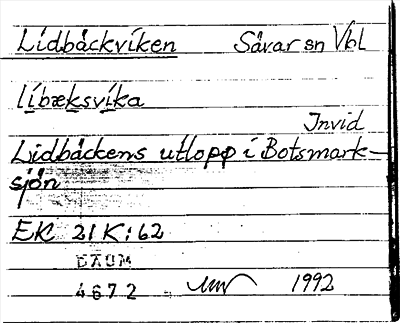 Lidbäckviken Sävar sn Vbl
líbæksvíka
Invid
Lidbäckens utlopp i Botsmark-
sjön
EK 21K:62
DAUM
4672 1992